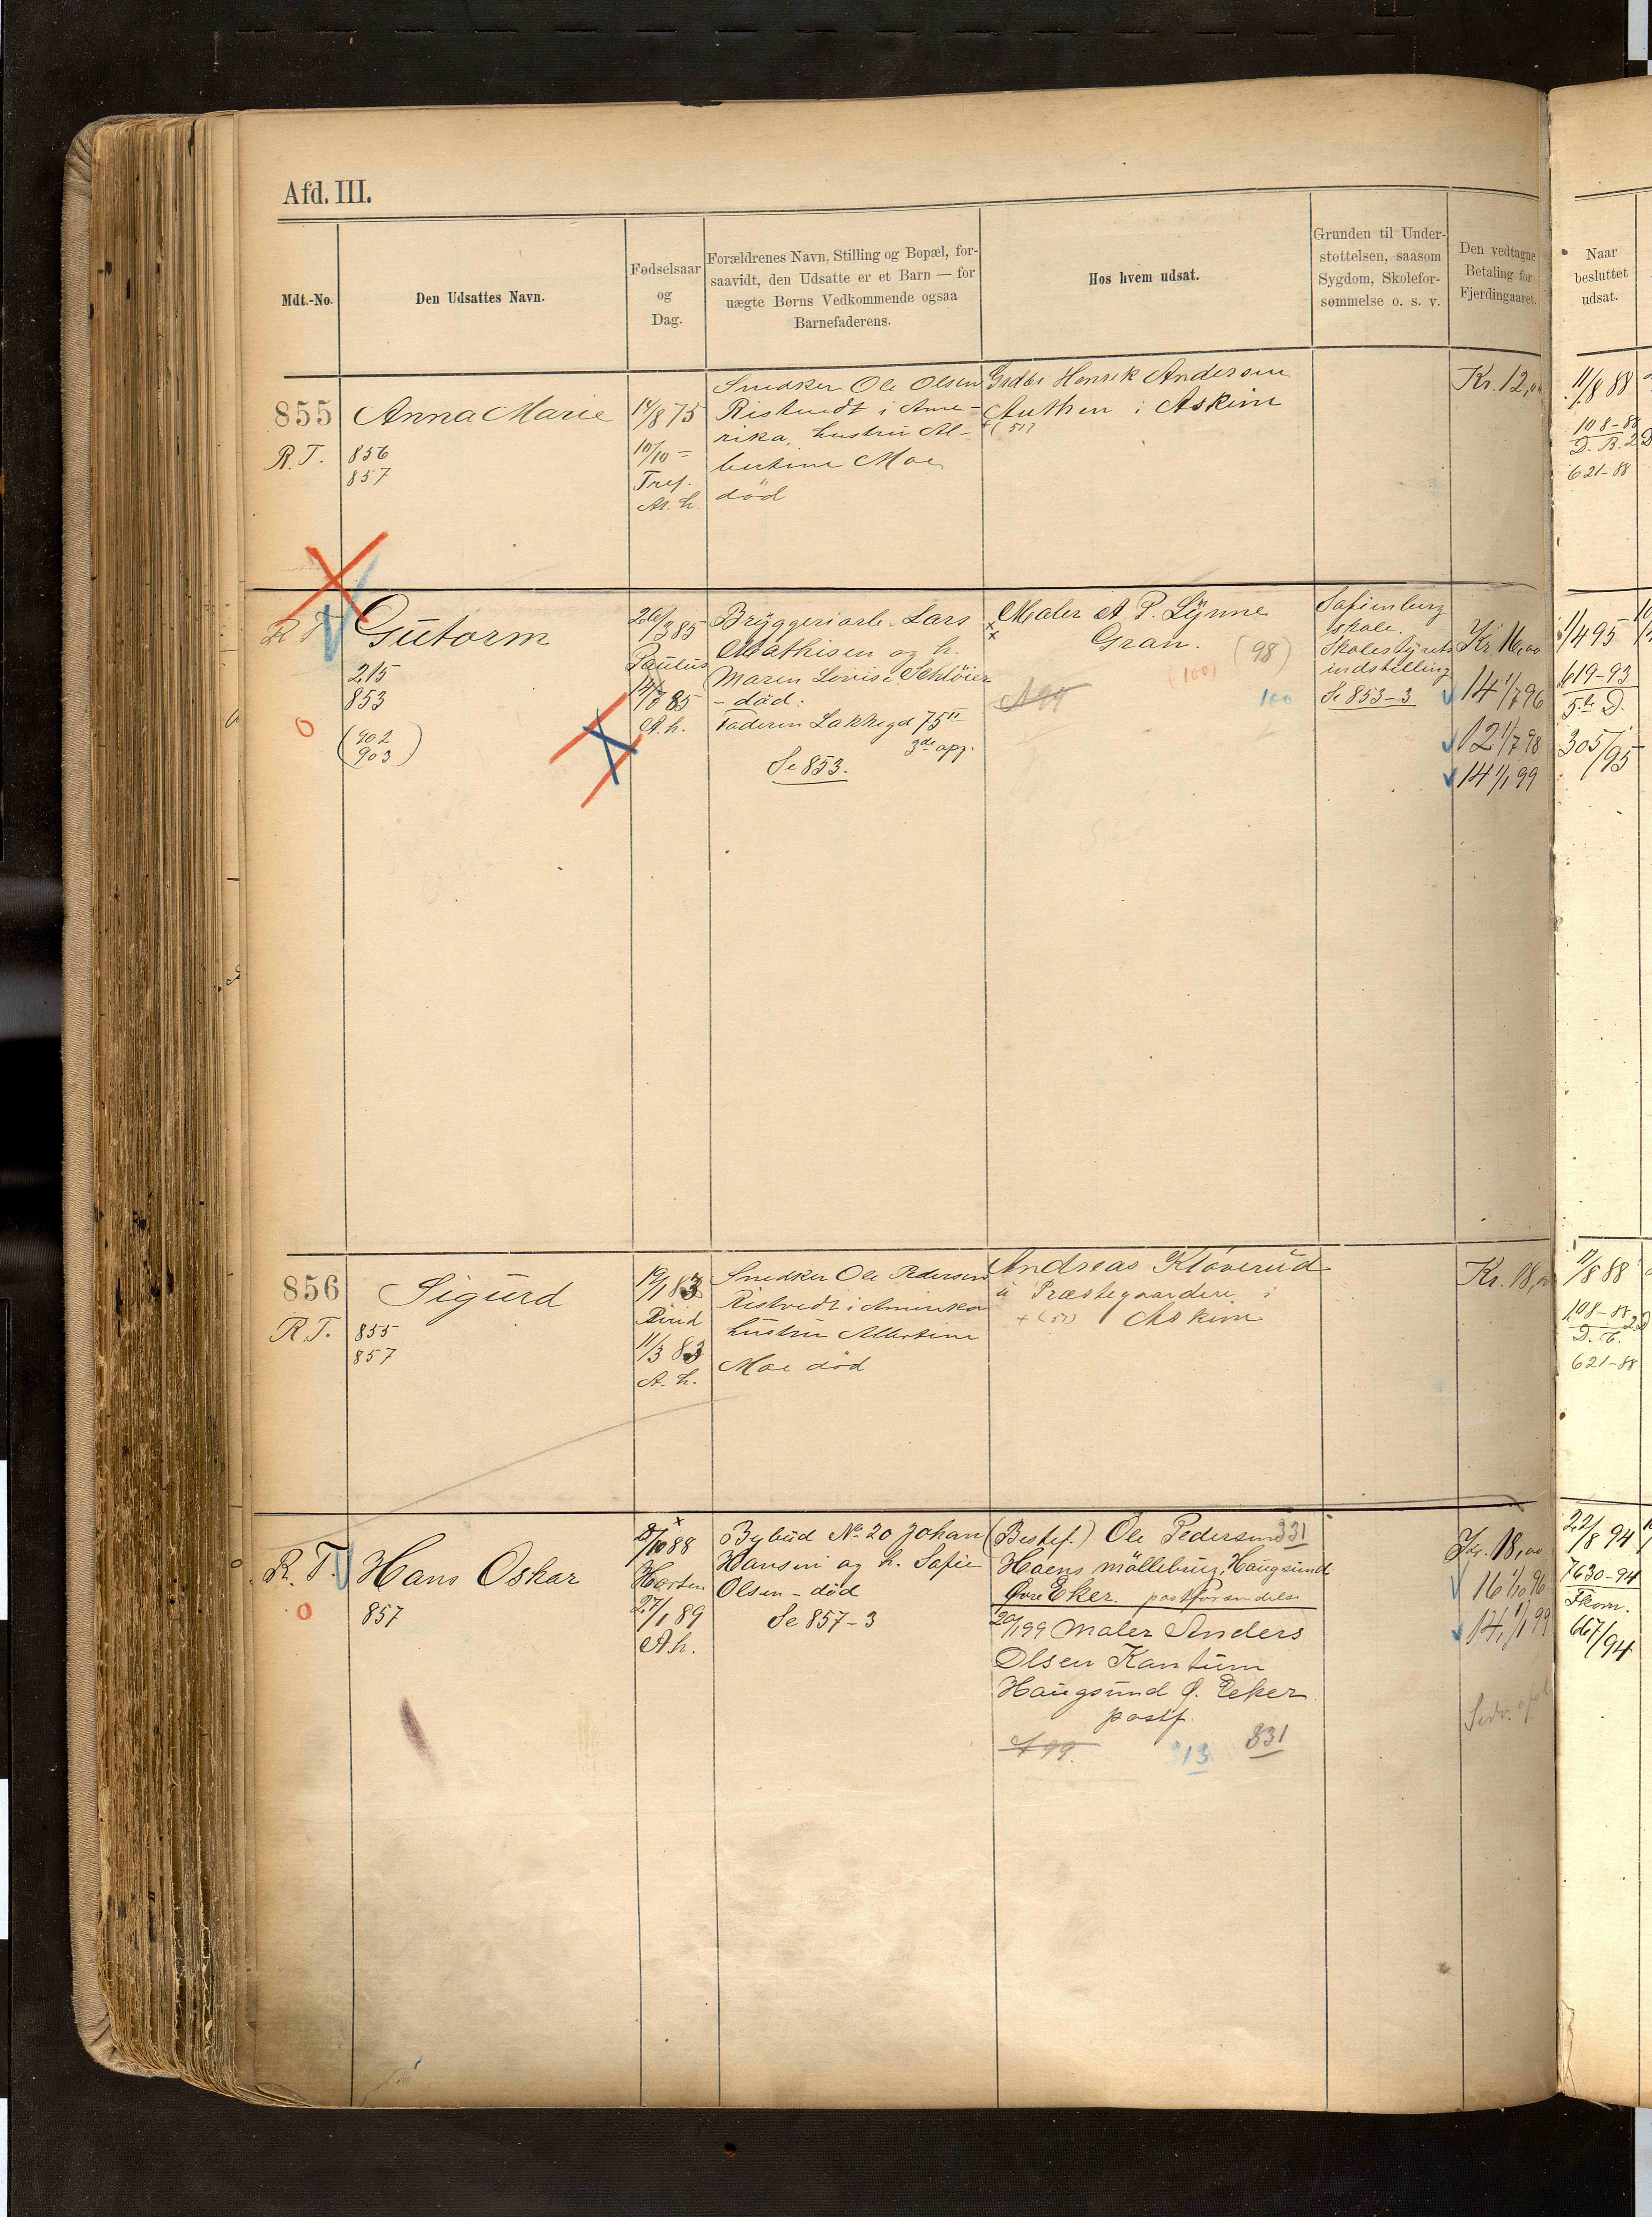 Afd. III.
Mdt.-No.
Den Udsattes Navn.
Fødselsaar
og
Dag.
Forældrenes Navn, Stilling og Bopæl, for-
saavidt, den Udsatte er et Barn — for
uægte Børns Vedkommende ogsaa
Barnefaderens.
Hos hvem udsat.
Grunden til Under-
støttelsen, saasom
Sygdom, Skolefor-
sømmelse o. s. v.
Den vedtagne
Betaling for
Fjerdingaaret.
Naar
besluttet
udsat.
855
R. T.
Anna Marie
856
857
14/8 75
10/10 =
Tref.
A. h.
Snedker Ole Olsen
Ristvedt i Ame-
rika, hustru Al-
bertine Moe
død
Grdbr Henrik Andersen
Authen i Askim
+ (51)
Kr. 12,00
11/8 88
108-88
D. B. 2 D
621-88
R T
Gutorm
215
853
(902
903)
26/3 85
Paulus
14/8 85
A. h.
Bryggeriarb. Lars
Mathisen og h.
Maren Lovise Schlöier
- död:
Faderen Lakkegd 75 II
3de opg.
Se 853.
Maler A. P. Lynne
Gran.
(98)
(100)
A 99
100
Sofienberg
skole.
Skolestyrets
indstilling
Se 853-3
Kr 16,00
14 1/7 96
12 1/7 98
14 1/1 99
1/4 95
619-93
5te D.
305/95
856
R. T.
Sigurd
855
857
19/1 83
11/3 83
A. h.
Snedker Ole Pedersen
Ristvedt i Amerika
hustru Albertine
Moe död
Andreas Kløverud
u Præstegaarden i
+ (51) Askim
Kr. 18,00
11/8 88
108-88
621-88
R. T.
Hans Oskar
857
2/10 88
Horten
27/1 89
A h.
Bybud No 20 Johan
Hansen og h. Sofie
Olsen - död
Se 857-3
(Bestef.) Ole Pedersen 331
Haens möllebrug, Haugsund
Øvre Eker. postforsendelse
20/1 99 Maler Anders
Olsen Kantum
Haugsund Ø. Eeker
postf.
A 99.
13
331
Kr. 18,00
16 1/10 96
14, 1/1 99
22/8 94
7630-94
Fkom.
667/94